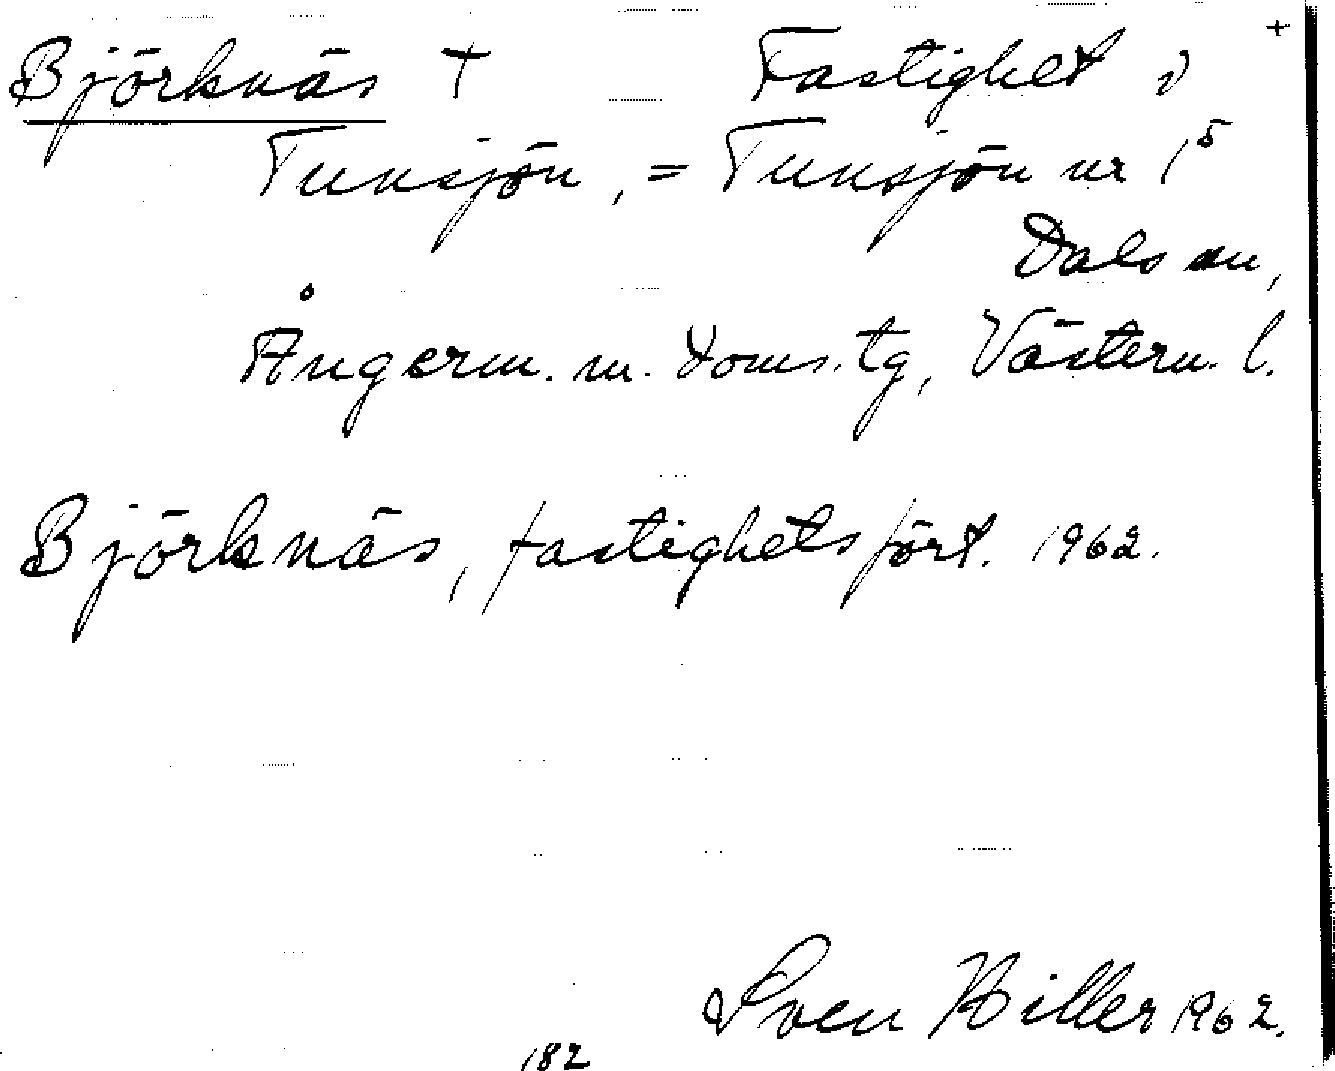 Björknäs + Fastighet i +
Tunsjön, = Tunsjön nr 1⁵
Dals sn,
Ångerm. m. doms. tg, Västern. l.
Björknäs, fastighetsfört. 1962.
Sven Hiller 1962.
182